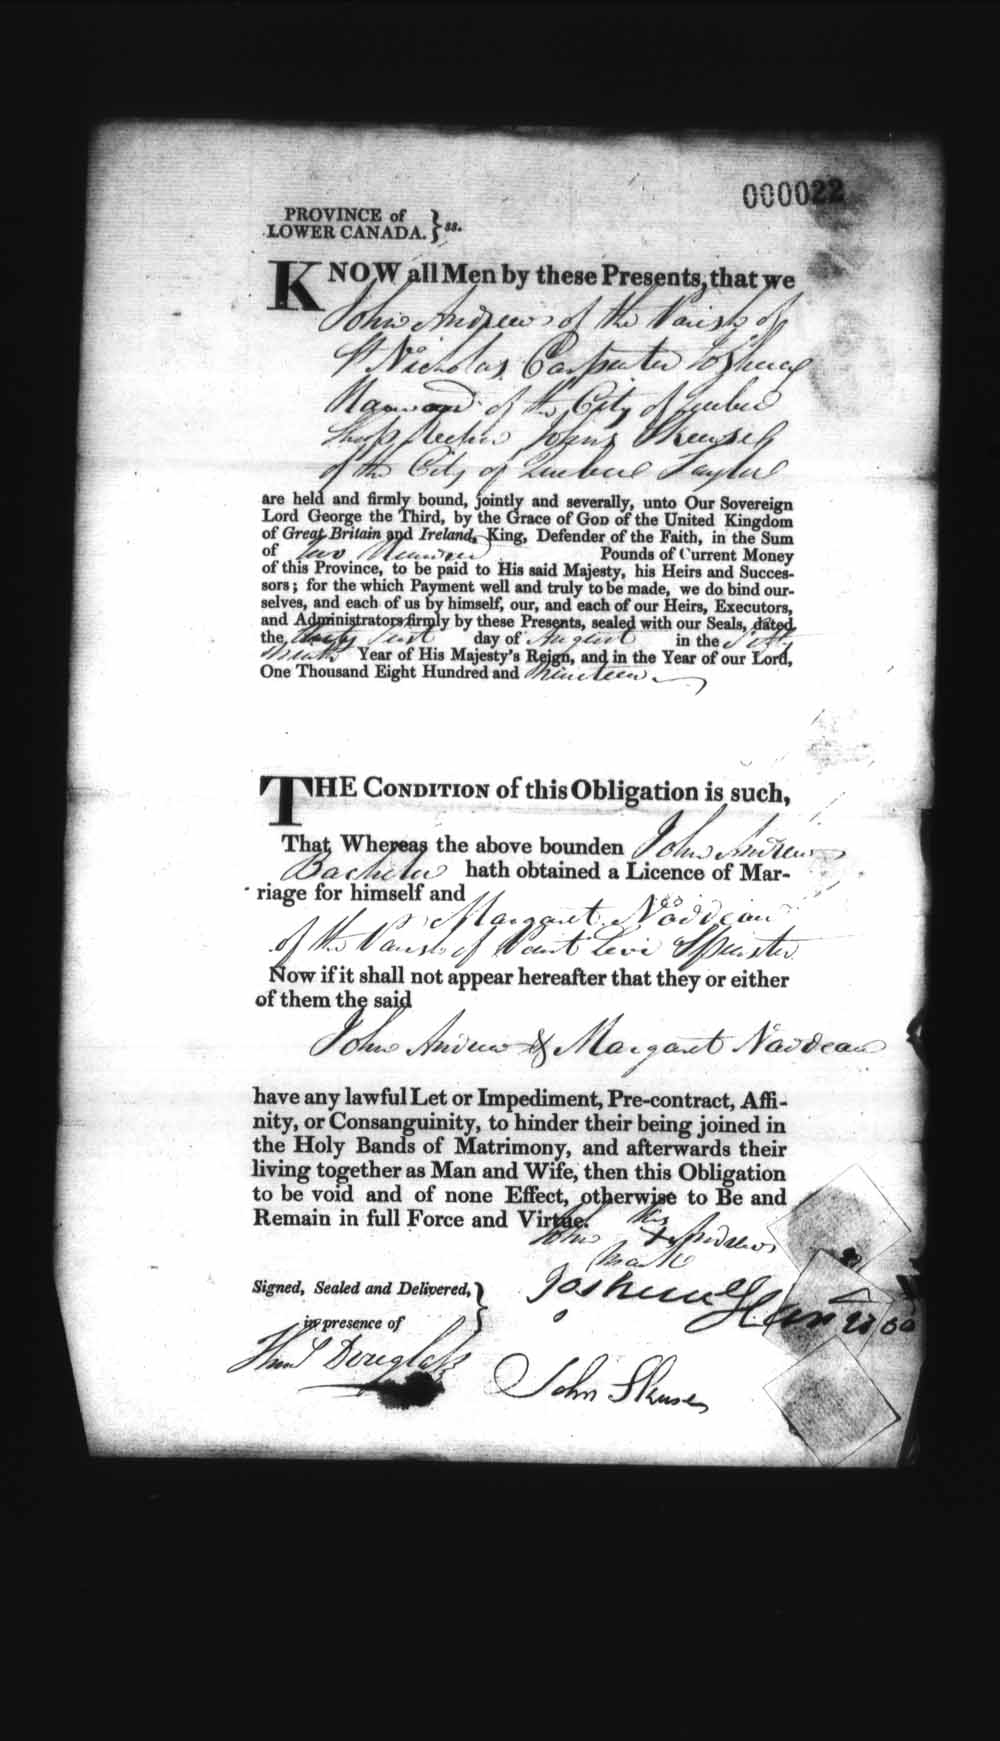 000022
PROVINCE of
LOWER CANADA. } ss.
KNOW all Men by these Presents, that we
John Andrews of the Parish of
St Nicholas Carpenter Joshua
of the City of Quebec
John Skewse
of the City of Quebec Taylor
are held and firmly bound, jointly and severally, unto Our Sovereign
Lord George the Third, by the Grace of God of the United Kingdom
of Great Britain and Ireland, King, Defender of the Faith, in the Sum
of Two Hundred Pounds of Current Money
of this Province, to be paid to His said Majesty, his Heirs and Succes-
sors; for the which Payment well and truly to be made, we do bind our-
selves, and each of us by himself, our, and each of our Heirs, Executors,
and Administrators firmly by these Presents, sealed with our Seals, dated
the thirty first day of August in the Fifty
Year of His Majesty's Reign, and in the Year of our Lord,
One Thousand Eight Hundred and Nineteen
THE CONDITION of this Obligation is such,
That Whereas the above bounden John Andrews
Bachelor hath obtained a Licence of Mar-
riage for himself and
Margaret Naddeau
of the Parish of Point Levi Spinster
Now if it shall not appear hereafter that they or either
of them the said
John Andrew & Margaret Naddeau
have any lawful Let or Impediment, Pre-contract, Affi-
nity, or Consanguinity, to hinder their being joined in
the Holy Bands of Matrimony, and afterwards their
living together as Man and Wife, then this Obligation
to be void and of none Effect, otherwise to Be and
Remain in full Force and Virtue.
his
John + Andrews
mark
Signed, Sealed and Delivered, }
Joshua
in presence of
Douglass
John Skewse